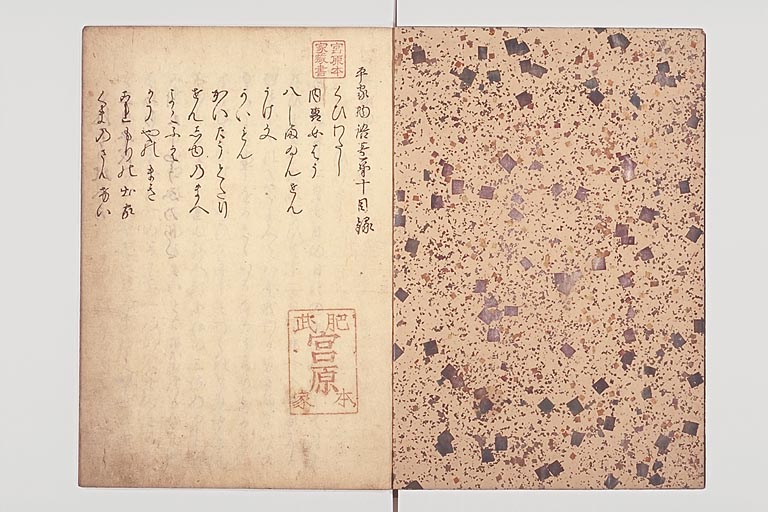 宮原本
家蔵書
平家物語巻第十目録
くひわたし
内裏女はう
八しまゐんせん
うけ文
かいもん
かいたうくたり
せんしゆのまへ
よこふえ
かうやのまき
これもりの出家
くまのさんけい
肥武
宮原
本家